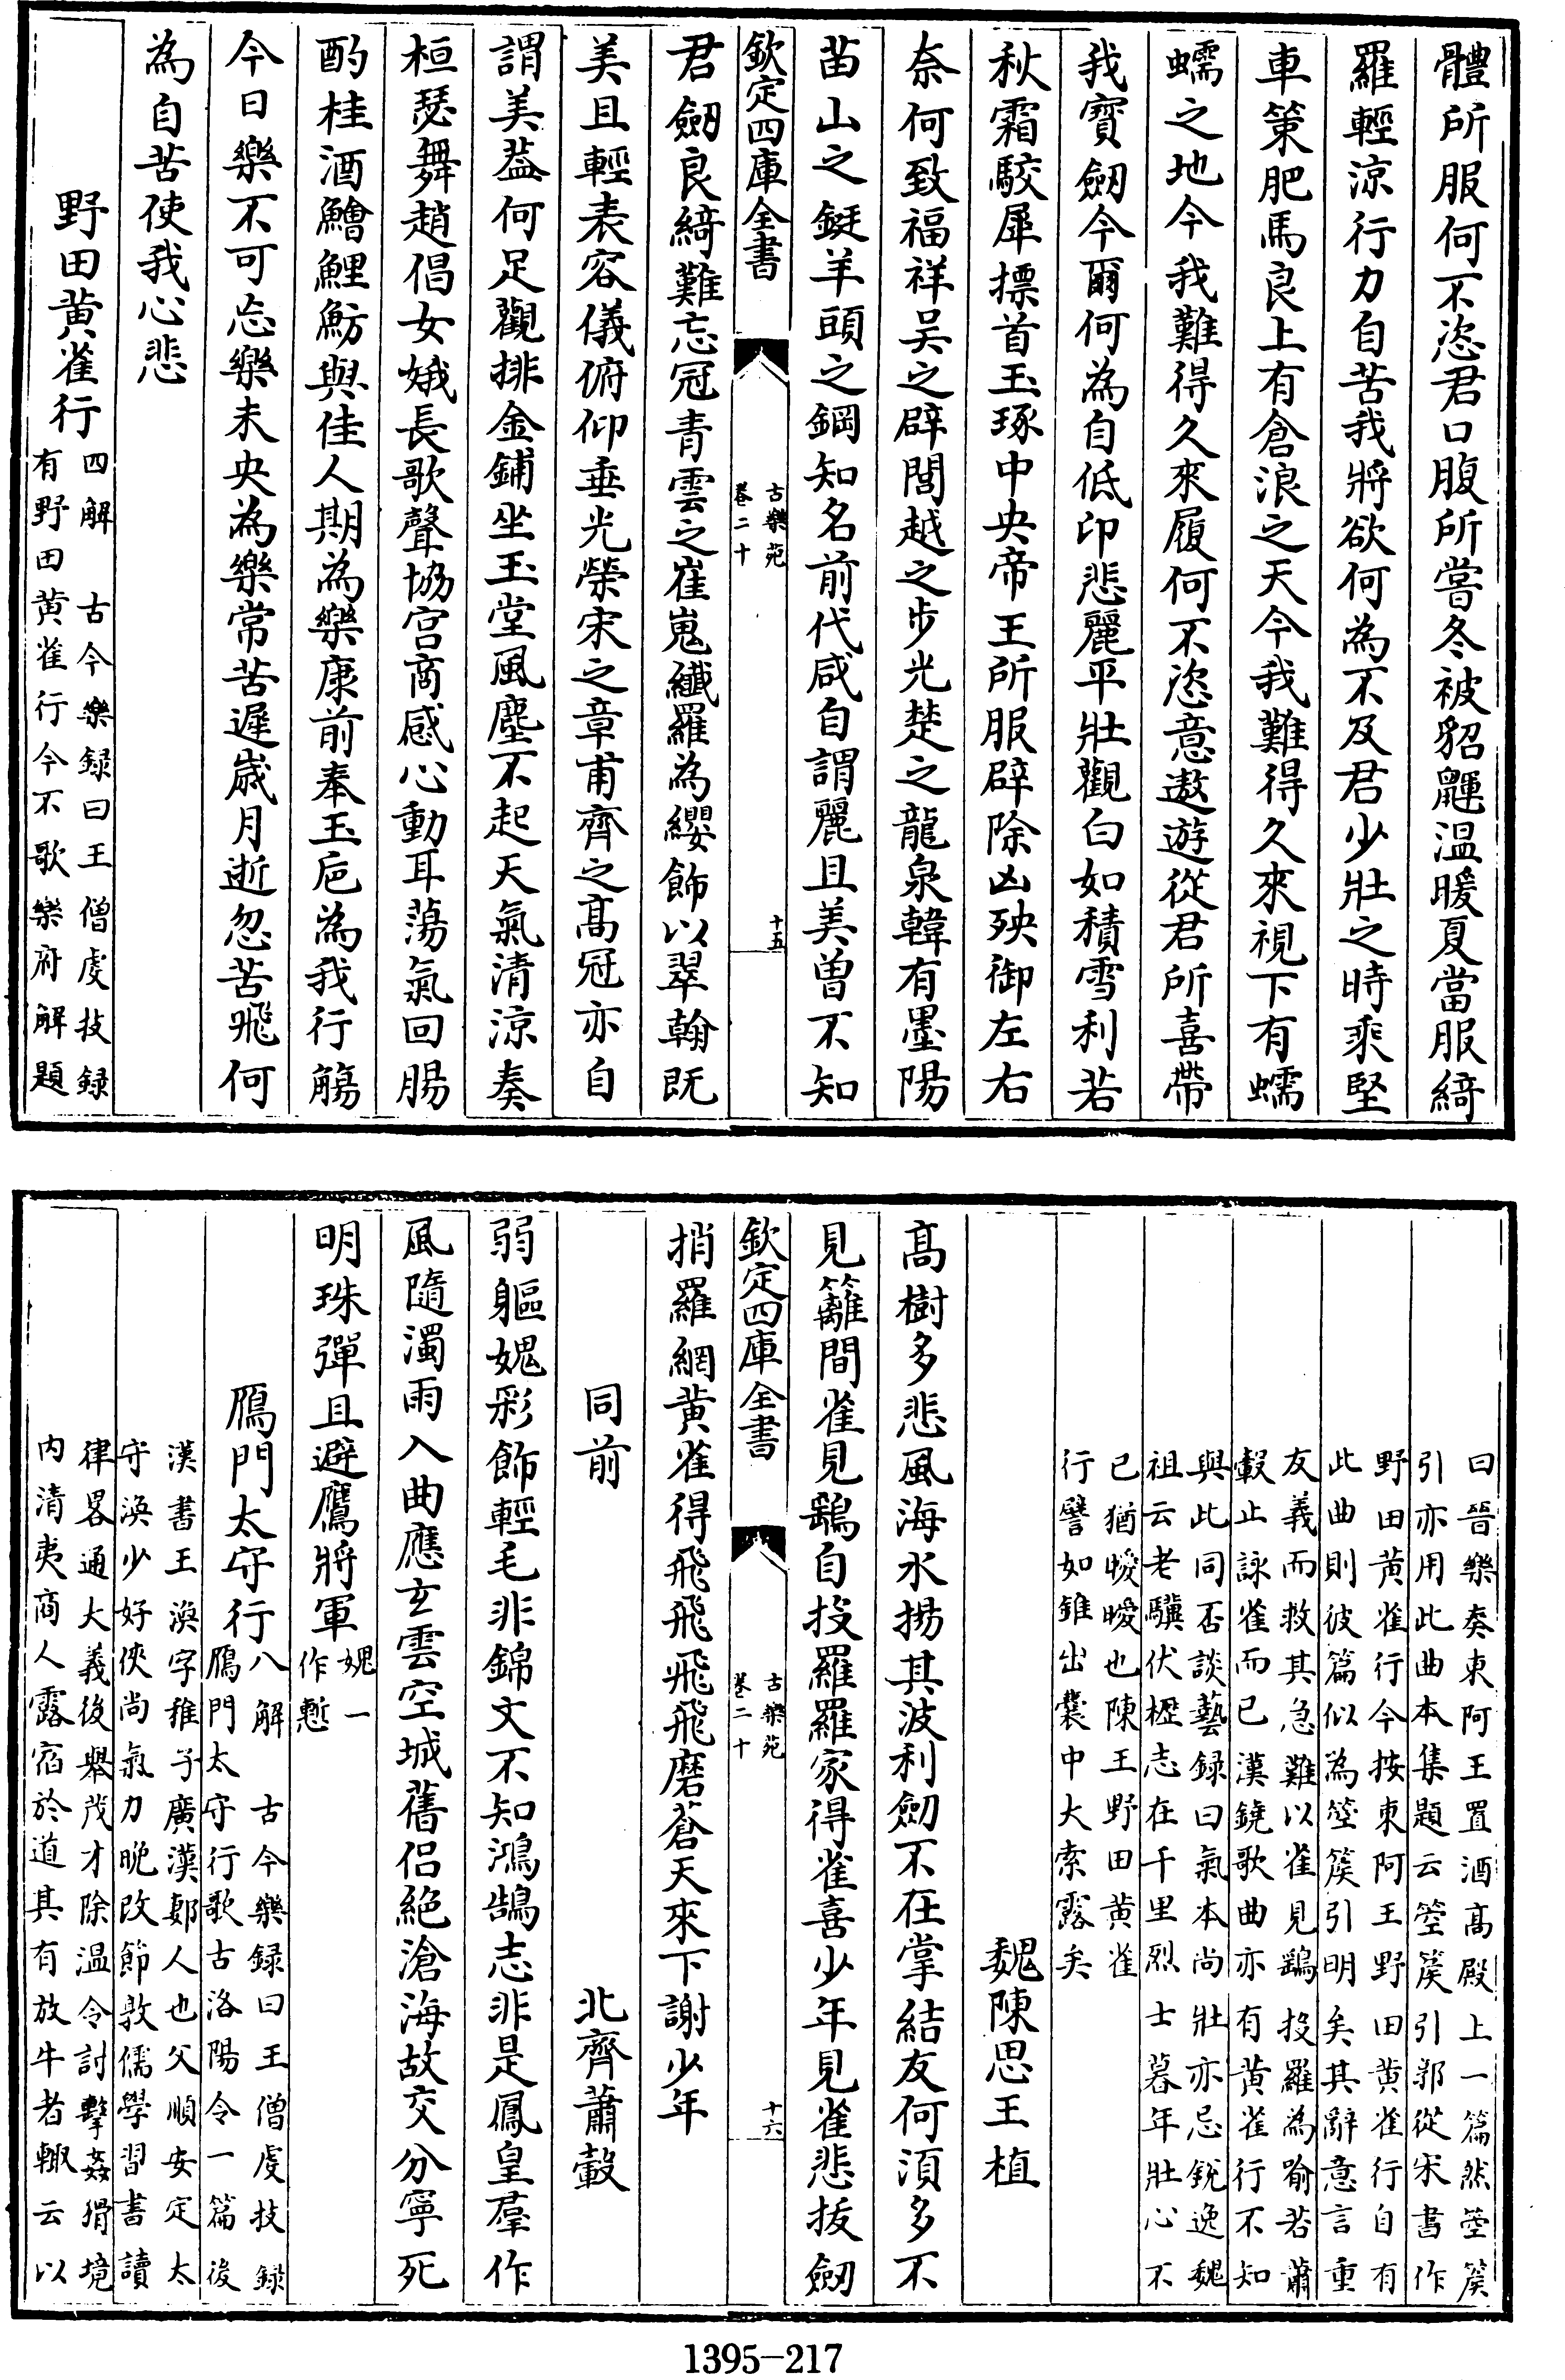 體所服何不恣君口腹所嘗冬被貂鼲温暖夏當服綺
羅輕涼行力自苦我將欲何為不及君少壯之時乘堅
車策肥馬良上有倉浪之天今我難得久來視下有蠕
蠕之地今我難得久來履何不恣意遨遊從君所喜帶
我寶劒今爾何為自低卬悲麗平壯觀白如積雪利若
秋霜駮犀摽首玉琢中央帝王所服辟除凶殃御左右
奈何致福祥吳之辟閭越之步光楚之龍泉韓有墨陽
苗山之鋌羊頭之鋼知名前代咸自謂麗且美曾不知
欽定四庫全書
古樂苑
卷二十
十五
君劒良綺難忘冠青雲之崔嵬纖羅為纓飾以翠翰既
美且輕表容儀俯仰垂光榮宋之章甫齊之髙冠亦自
謂美葢何足觀排金鋪坐玉堂風塵不起天氣清涼奏
桓瑟舞趙倡女娥長歌聲協宫商感心動耳蕩氣回腸
酌桂酒鱠鯉魴與佳人期為樂康前奉玉巵為我行觴
今日樂不可忘樂未央為樂常苦遲嵗月逝忽苦飛何
為自苦使我心悲
野田黄雀行四解 古今樂録曰王僧䖍技録
有野田黄雀行今不歌樂府解題
曰晉樂奏東阿王置酒髙殿上一篇然箜篌
引亦用此曲本集題云箜篌引郭從宋書作
野田黄雀行今按東阿王野田黄雀行自有
此曲則彼篇似為箜篌引明矣其辭意言重
友義而救其急難以雀見鷂投羅為喻若蕭
轂止詠雀而已漢鐃歌曲亦有黄雀行不知
與此同否談藝録曰氣本尚壯亦忌鋭逸魏
祖云老驥伏櫪志在千里烈士暮年壯心不
已猶曖曖也陳王野田黄雀
行譬如錐出囊中大索露矣
魏陳思王植
髙樹多悲風海水揚其波利劒不在掌結友何湏多不
見籬間雀見鷂自投羅羅家得雀喜少年見雀悲拔劒
欽定四庫全書
古樂苑
卷二十
十六
捎羅網黄雀得飛飛飛飛磨蒼天來下謝少年
同前 北齊蕭轂
弱軀媿彩飾輕毛非錦文不知鴻鵠志非是鳳皇羣作
風隨濁雨入曲應玄雲空城舊侣絶滄海故交分寧死
明珠彈且避鷹將軍媿一
作慙
鴈門太守行八解 古今樂録曰王僧䖍技録
鴈門太守行歌古洛陽令一篇後
漢書王渙字稚子廣漢郪人也父順安定太
守渙少好俠尚氣力晚改節敦儒學習書讀
律畧通大義後舉茂才除温令討擊姦猾境
内清夷商人露宿於道其有放牛者輙云以
1395-217